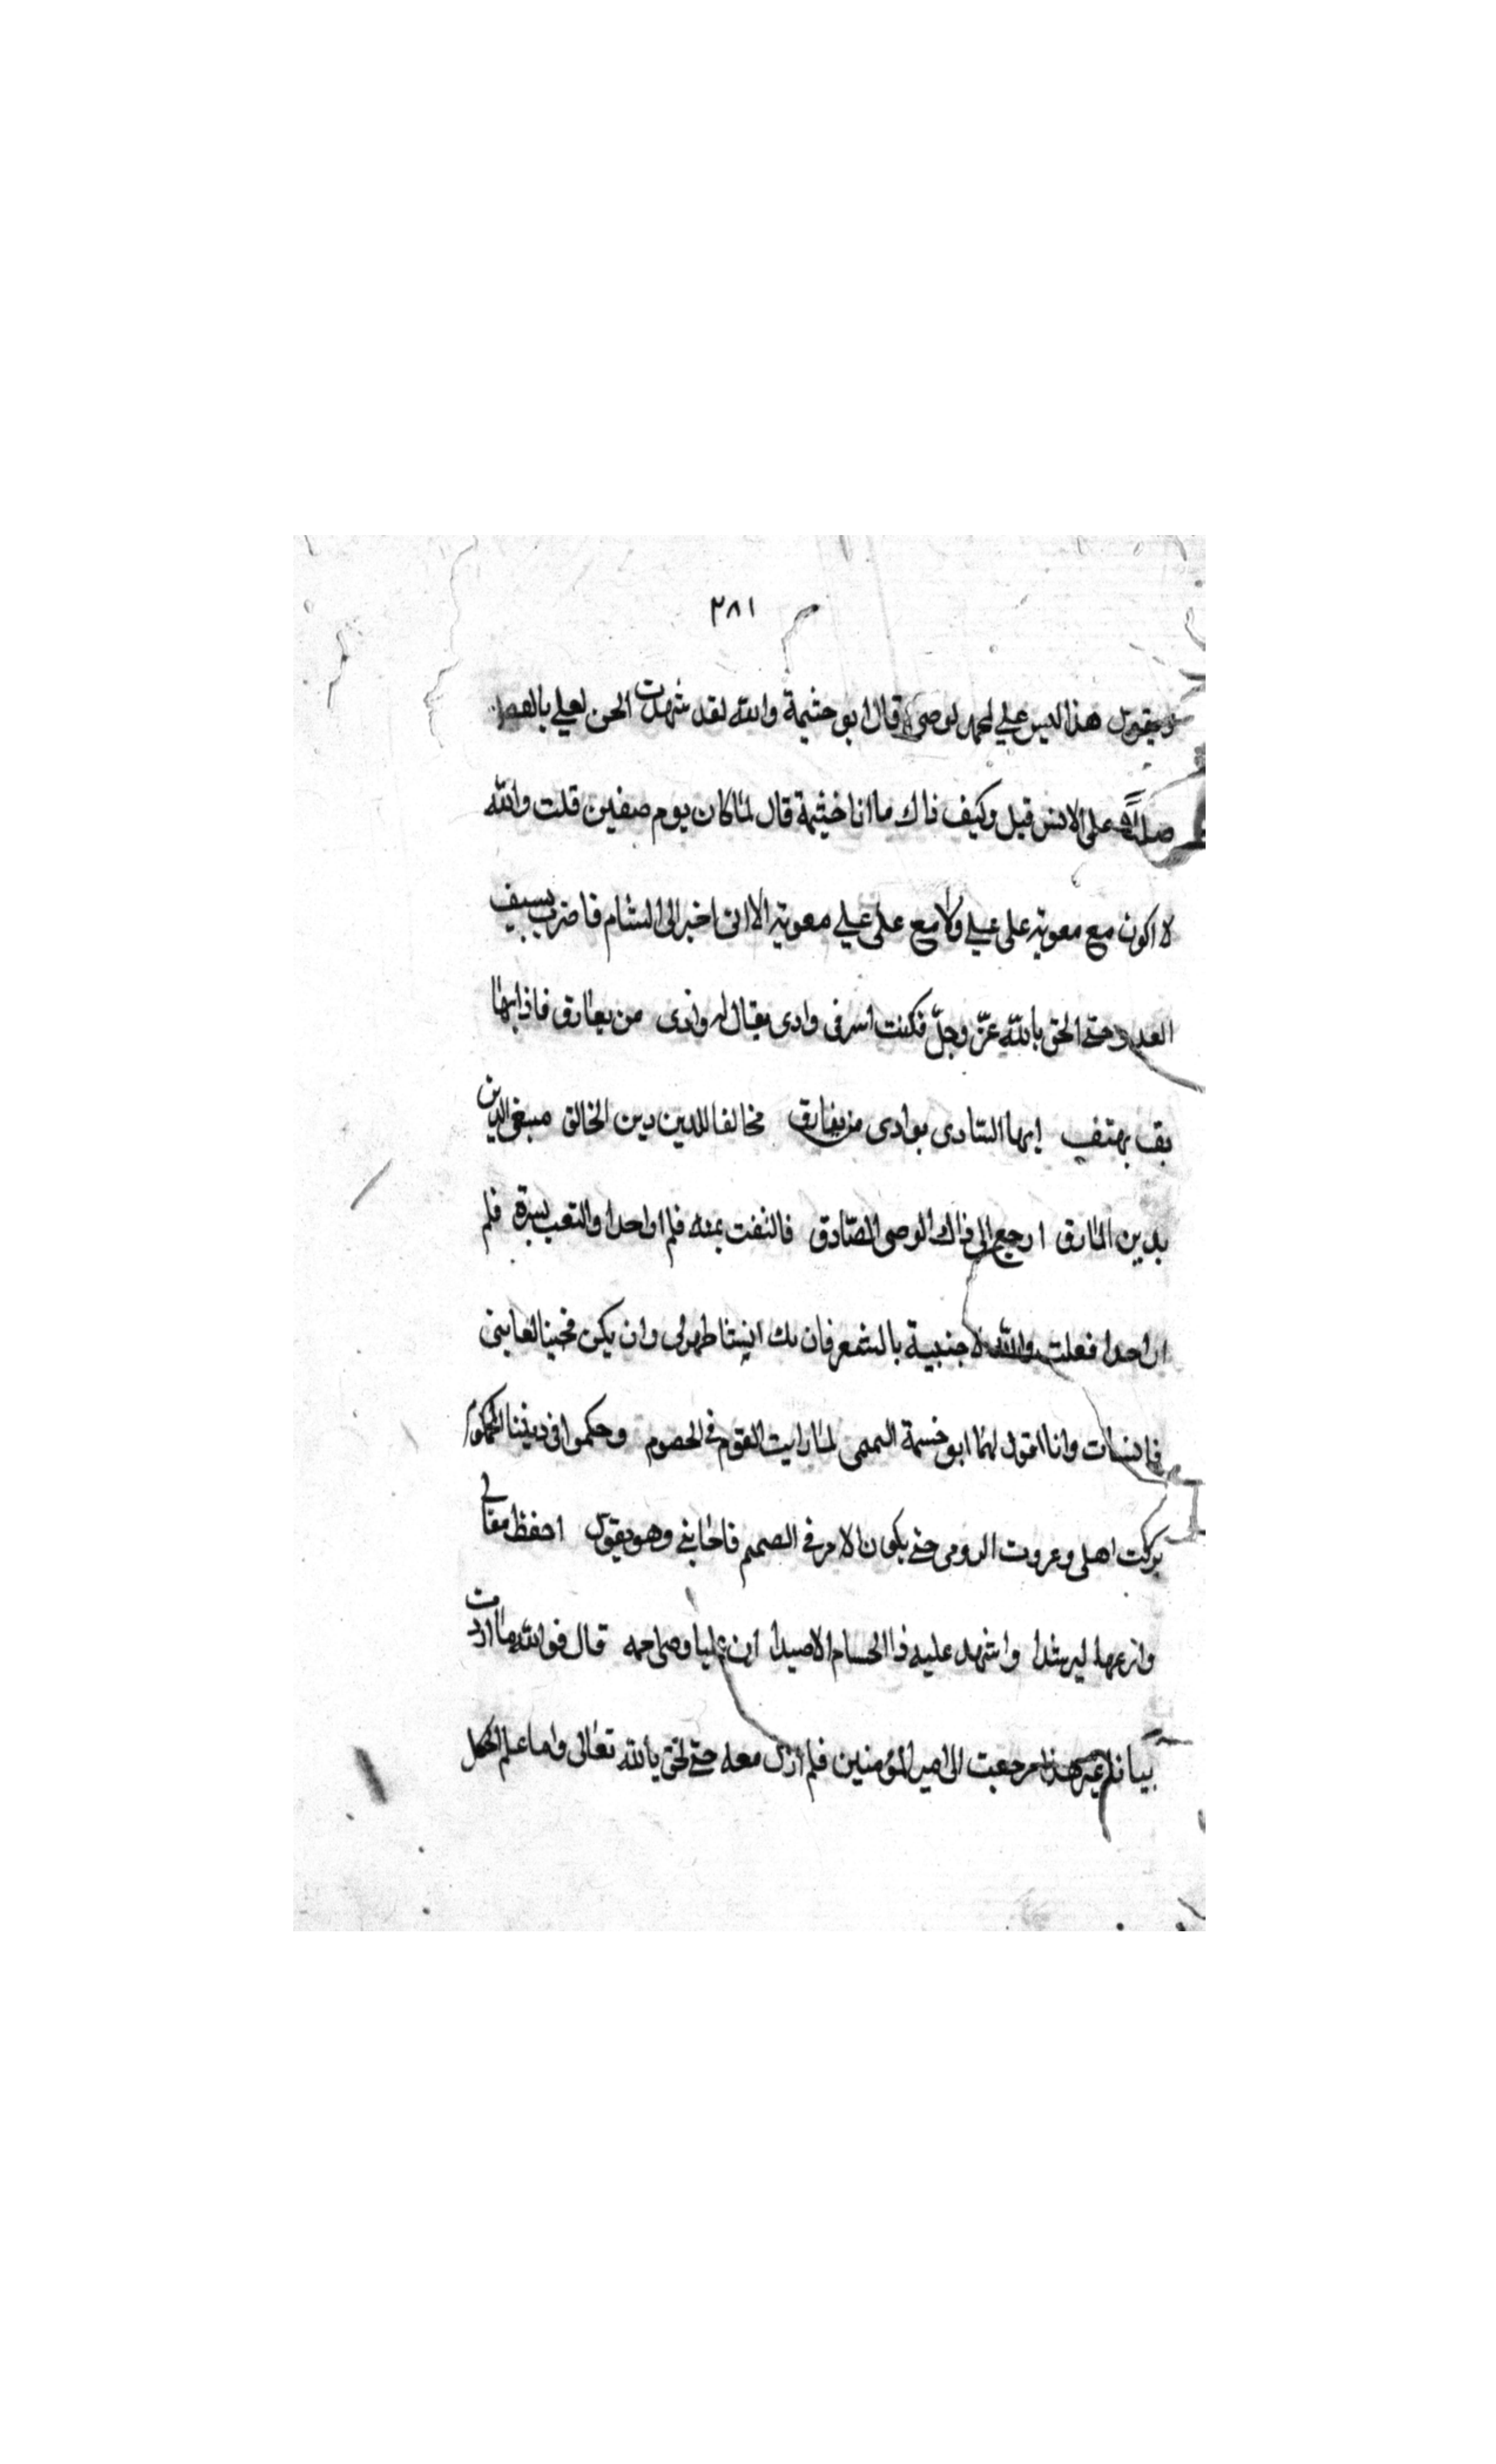 ٢٨١
ويقول هذا ليس علي لمحمد بوصي قال ابو خثيمة والله لقد شهدت الجن لعلي بالفضل
على الانس قيل وكيف ذاك ما انا خثيمة قال لما كان يوم صفين قلت والله
لا اكون مع معوية على علي ولا مع على علي معوية الا انى اخبر الى الشام فاضرب بسيف
العدو حتى الحق بالله عز وجل فكنت اسر فى وادى يقال له وادى من يفارق فاذا بها
تف يهتف ايها السادى بوادى من يفارق مخالفا للدين دين الخالق مبتغى الدين
بدين المارق ارجع الى ذاك الوصي الصادق فالتفت يمنه فلم ار احدا والتفت يسرة فلم
ار احدا فقلت والله لاجنبية بالشعر فان يك انيسا ظهر لى وان يكن
وانا اقول لهما ابو خسمة لما رايت القوم فى الخصوم وحكموا فى ديننا
تركت اهلى وعروت الرومى حتى يكون الامر فى الصميم فاجابنى وهو يقول احفظ مقالى
وارعها ليرشدا واشهد عليه ذا الحسام الاصيدا ان عليا وصى احمد قال فوالله ما اردت
بيانا غير هذا فرجعت الى امير المؤمنين فلم ازل معه حتى لحق بالله تعالى واما علم